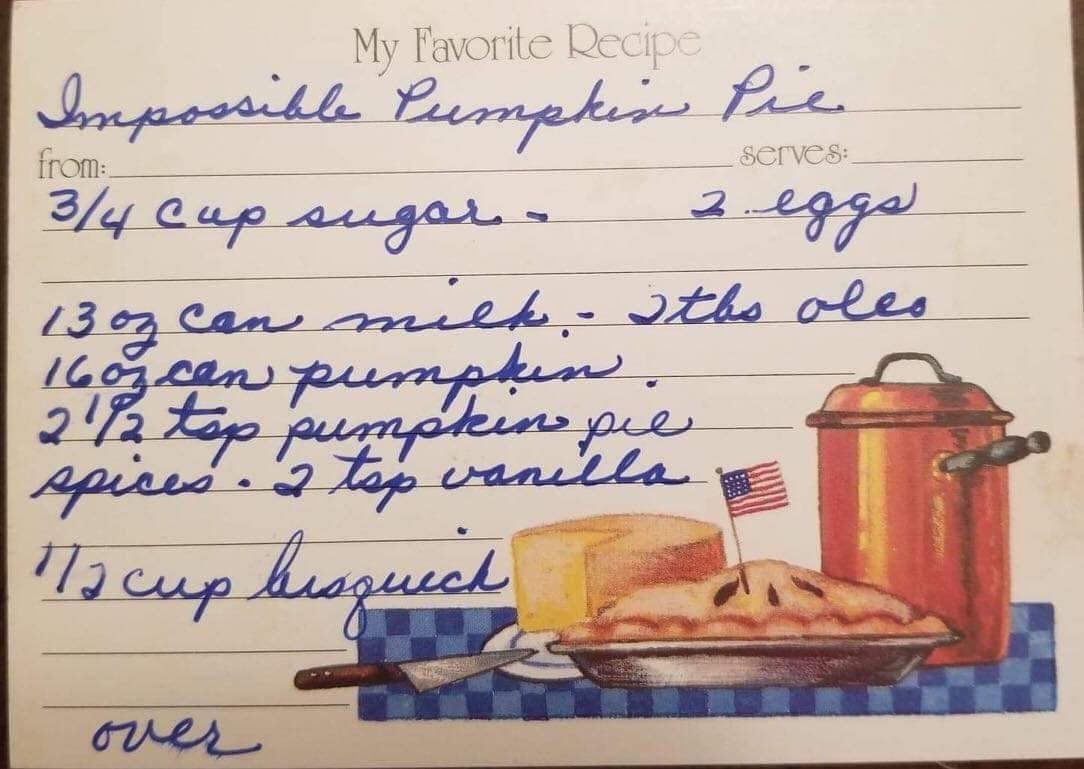 My Favorite Recipe
Impossible Pumpkin Pie
from: serves:
3/4 cup sugar - 2 eggs
13 oz can milk - 2 tbs oleo
16 oz can pumpkin.
2 1/2 tsp pumpkin pie
spices. 2 tsp vanilla
1/2 cup bisquick
over